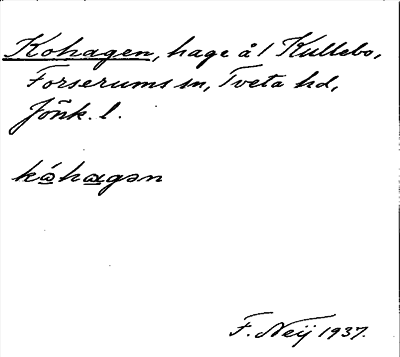 Kohagen, hage å 1 Kullebo,
Forserums sn, Tveta hd,
Jönk. l.
kóhagən
F. Neij 1937.